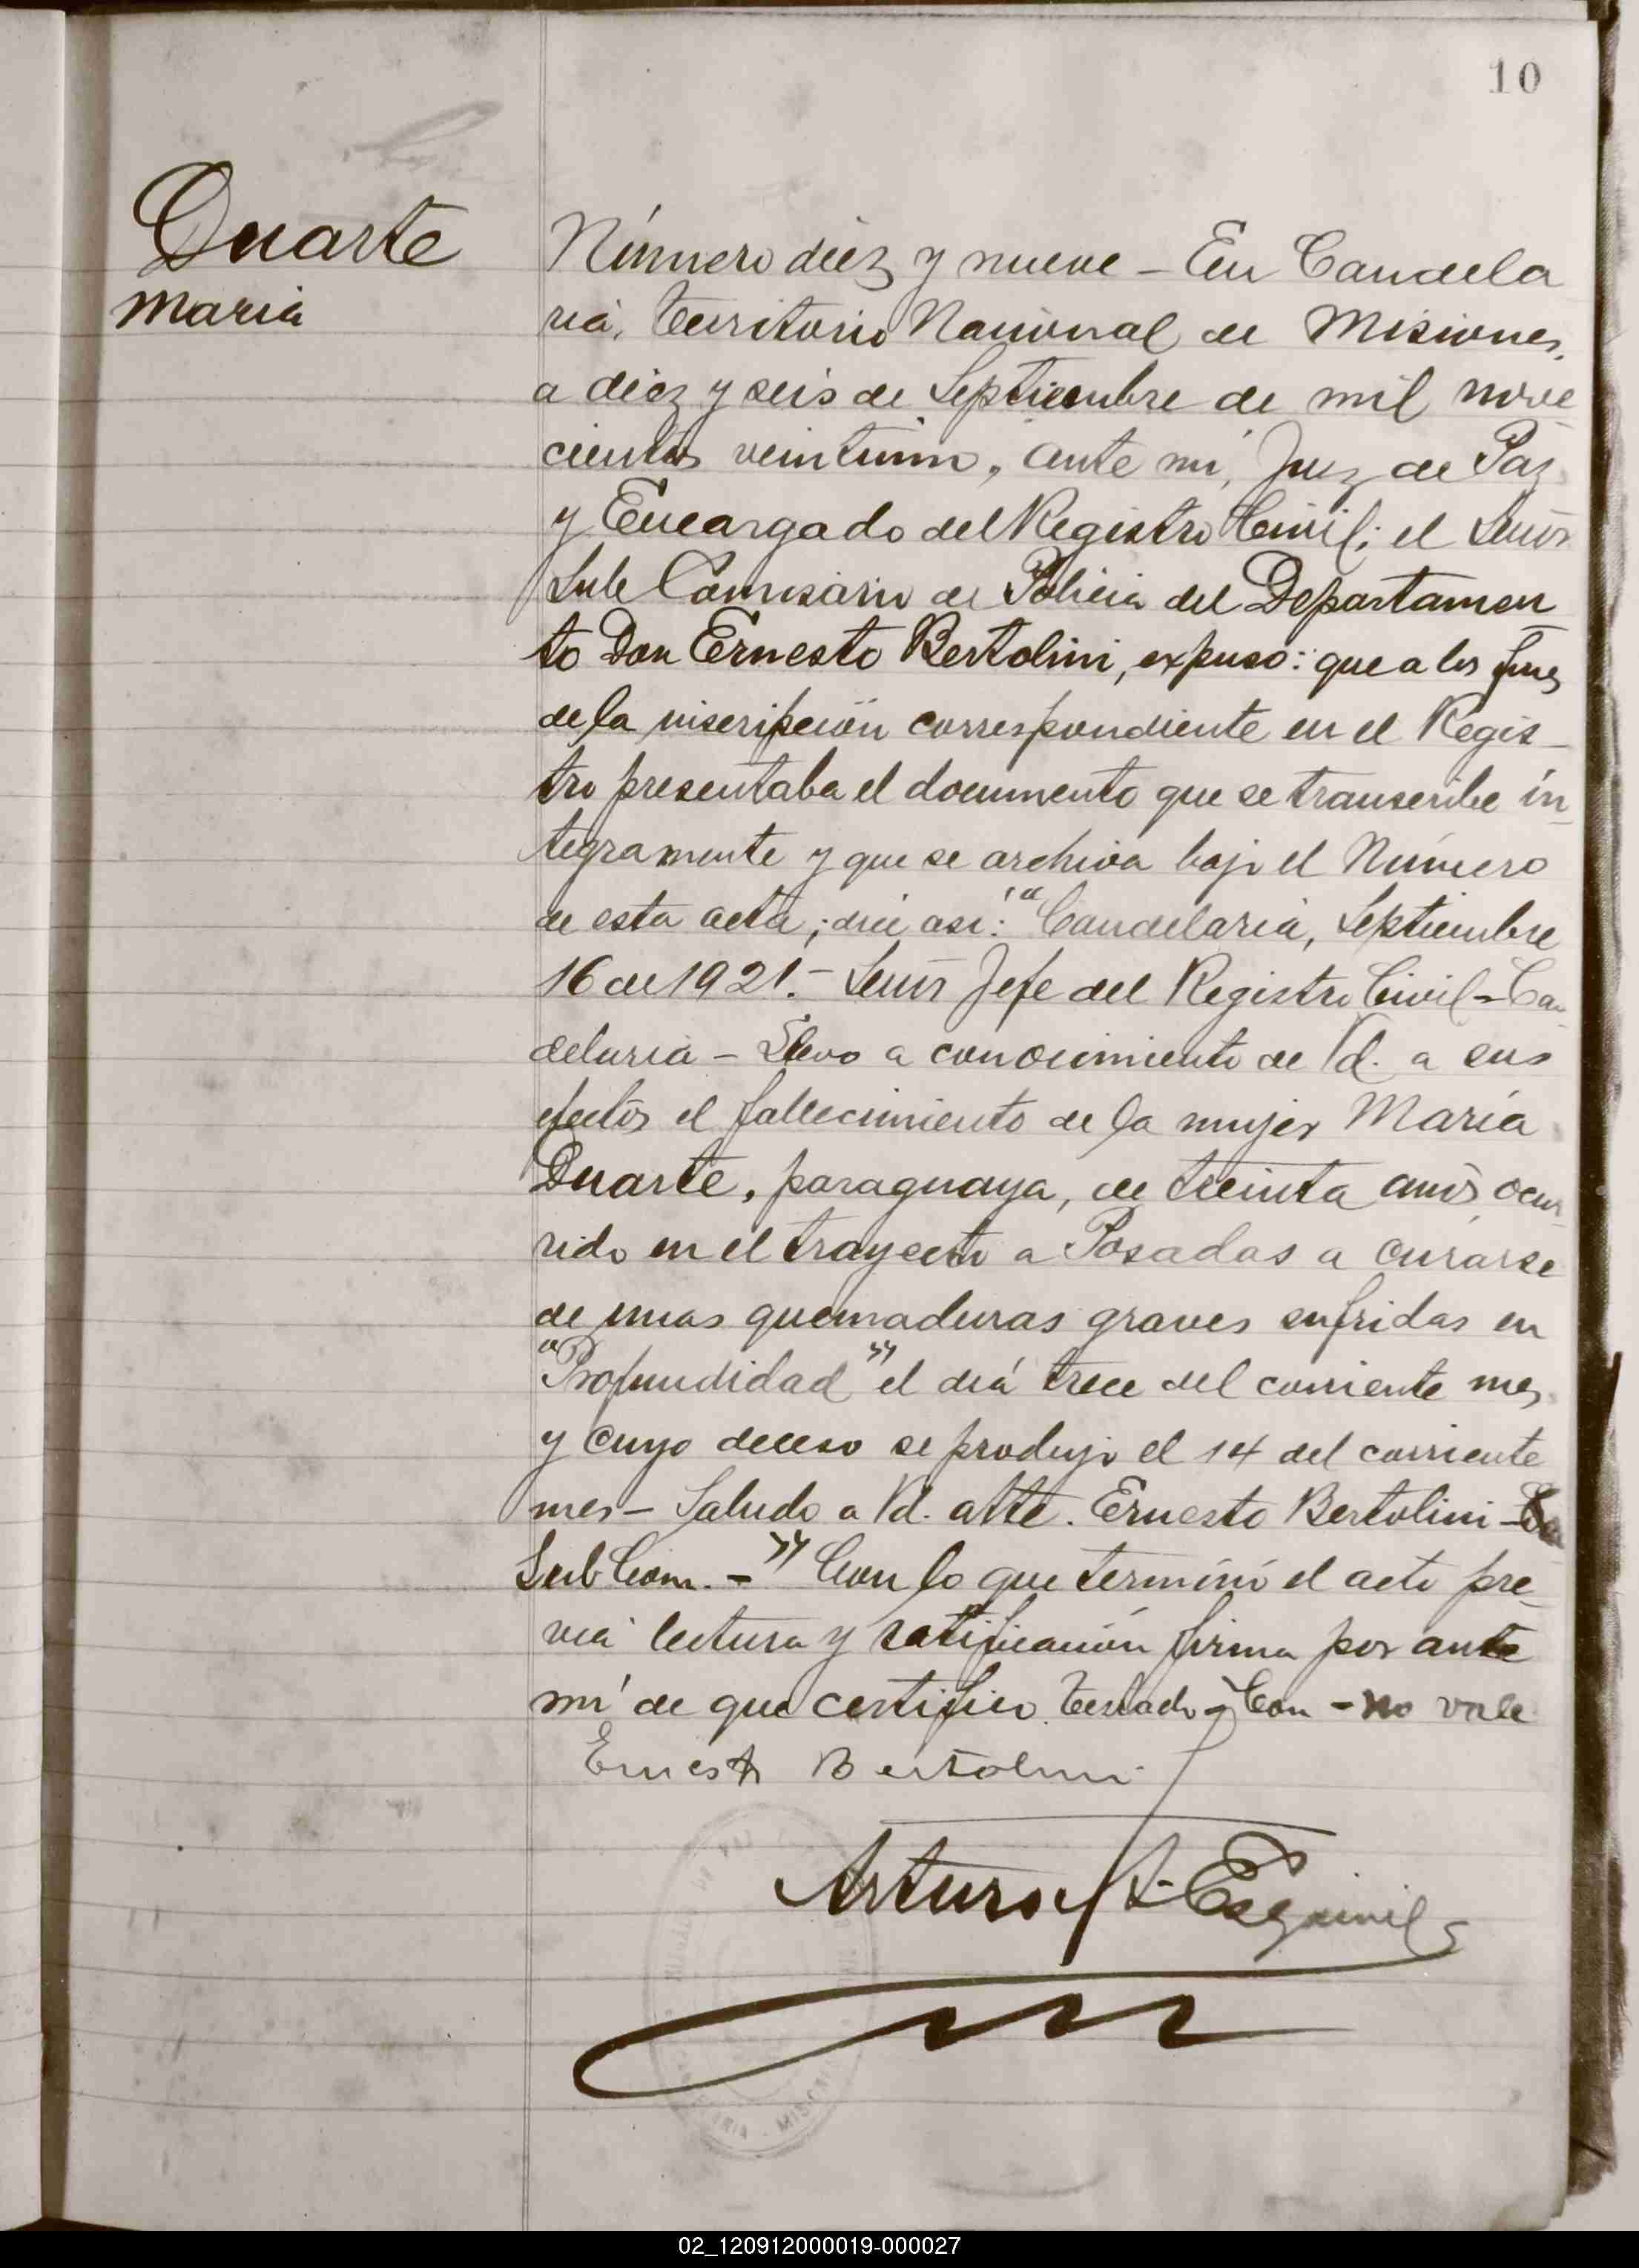 10
Duarte
Maria
Número diéz y nueve - En Candela
ria, Territorio Nacional de Misiones,
a diéz y seis de Septiembre de mil nove
cientos veintiuno, ante mi, Juez de Paz
y Encargado del Registro Civil; el Señor
Sub Comisario de Policia del Departamen
to Don Ernesto Bertolini, expuso: que a los fines
de la inscripción correspondiente en el Regis-
tro presentaba el documento que se transcribe ín
tegramente y que se archiva bajo el Número
de esta acta; dice asi: "Candelaria, Septiembre
16 de 1921.- Señor Jefe del Registro Civil - Can
delaria - Llevo a conocimiento de Vd. a sus
efectos el fallecimiento de la mujer María
Duarte, paraguaya, de treinta años ocur
rido en el trayecto a Posadas a curarse
de unas quemaduras graves sufridas en
"Profundidad" el día trece del corriente mes
y cuyo deceso se produjo el 14 del corriente
mes - Saludo a Vd. atte. Ernesto Bertolini -
Sub Com. - " Con lo que terminó el acto pre
via lectura y ratificación firma por ante
mí de que certifico. Testado - Con - no vale
Ernesto Bertolini
Arturo
02_120912000019-000027